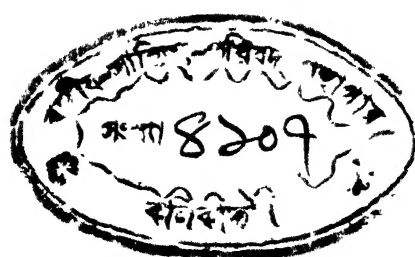 বঙ্গীয়-সাহিত্য-পরিষদ গ্রন্থাগার
সংখ্যা ৪১০৭
কলিকাতা।